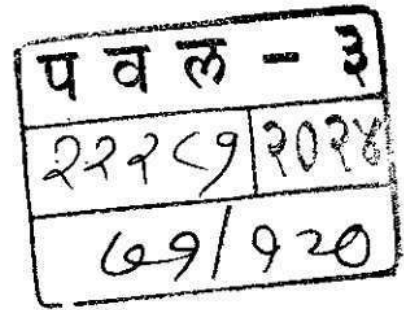 प व ल - ३
२२२८१ २०२४
७१/१२०